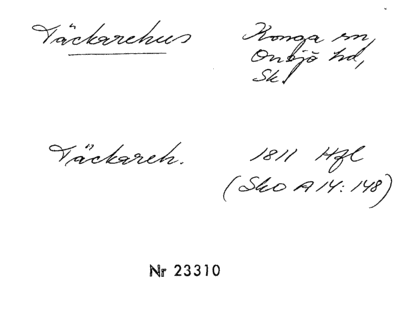 Täckarehus Konga sn,
Onsjö hd,
Sk.
Täckareh. 1811 Hfl
(SkO A14:148)
Nr 23310